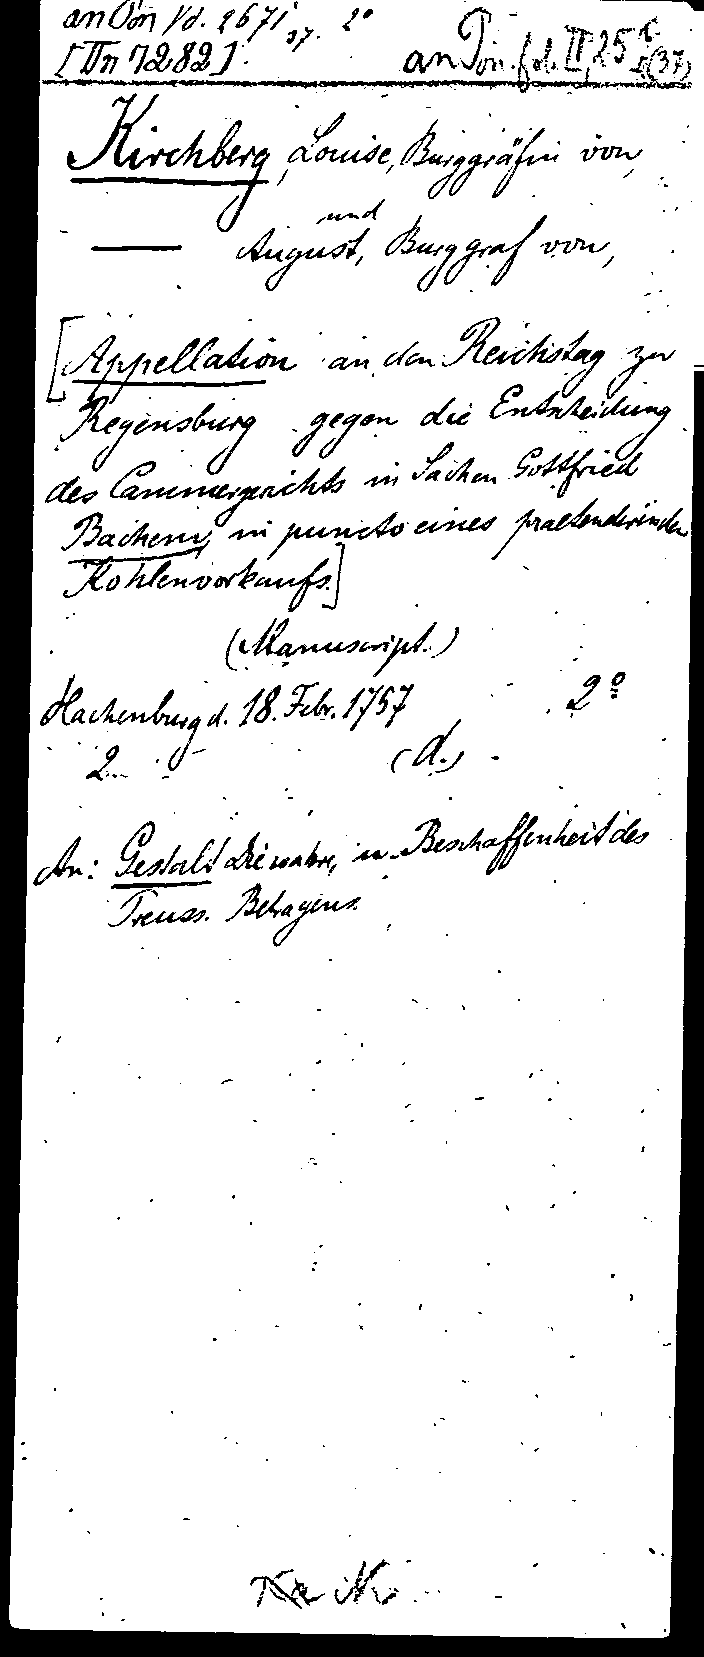 an Pon Yd. 2671 37. 2°
[IIn 7282]. an Pon. Yd. II, 25 (37)
Kirchberg, Louise, Burggräfin von,
und
— August, Burggraf von,
[Appellation an den Reichstag zu
Regensburg gegen die Entscheidung
des Cammergerichts in Sachen Gottfried
Bachem, in puncto eines praetendirenden
Kohlenvorkaufs.]
(Manuscript.)
Hachenburg d. 18. Febr. 1757 2°
2 (d.)
An: Gestalt Die wahre, u. Beschaffenheit des
Preuss. Betragens.